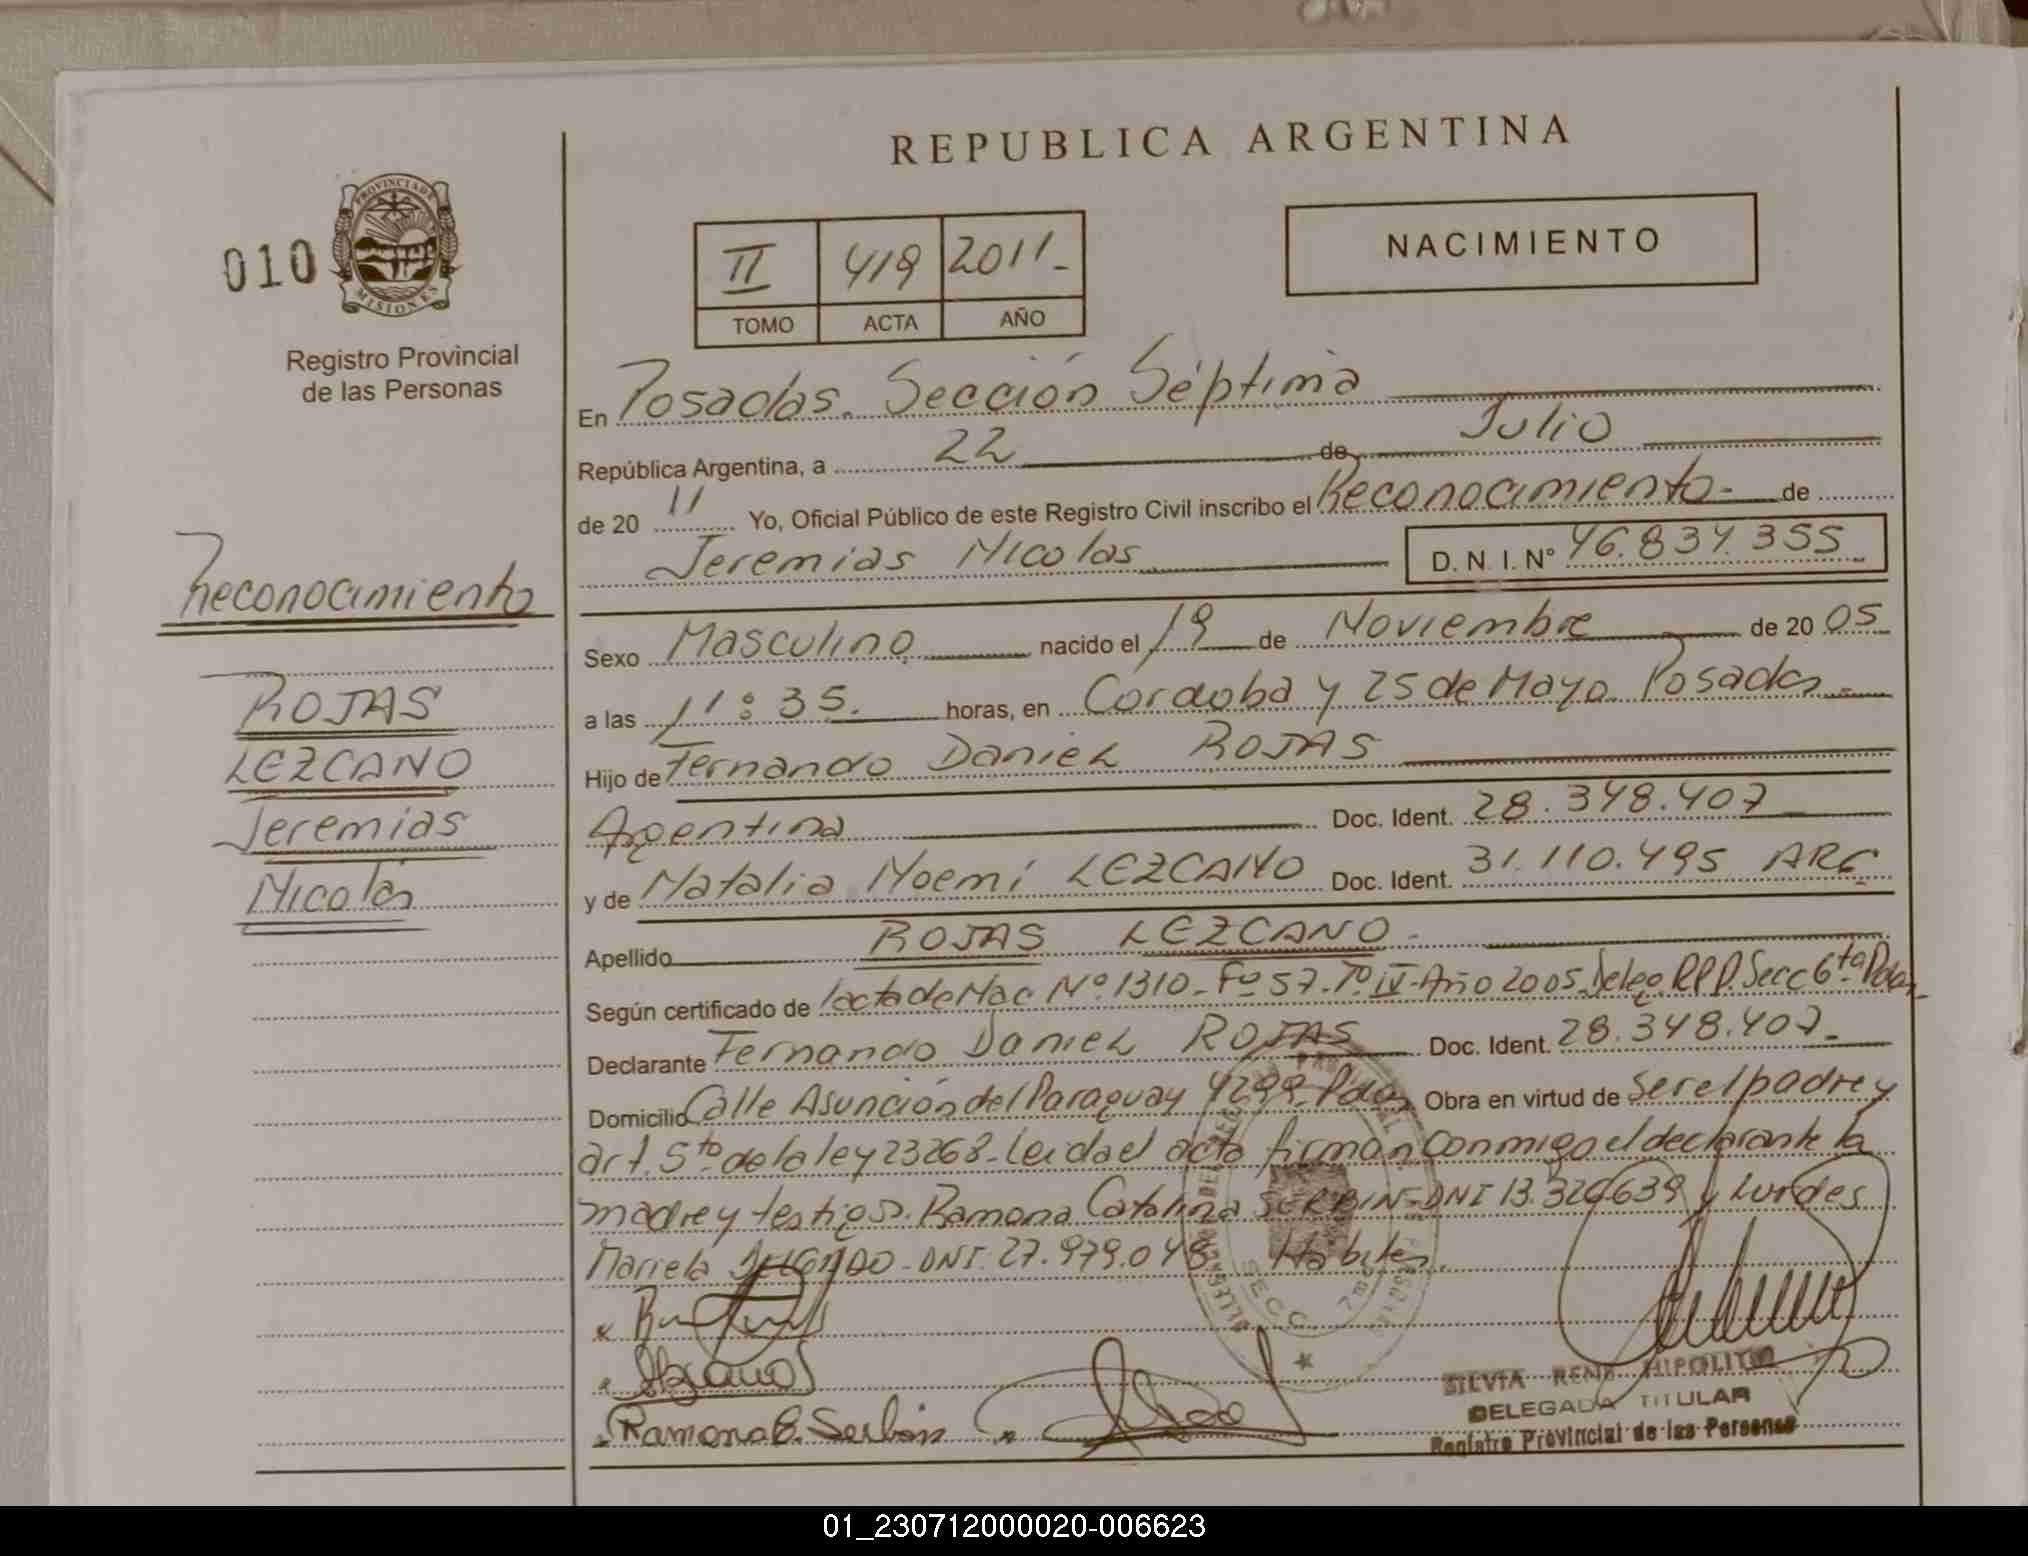 REPUBLICA ARGENTINA
010
PROVINCIA DE
MISIONES
Registro Provincial
de las Personas
II 419 2011.-
TOMO ACTA AÑO
NACIMIENTO
En Posadas. Sección Séptima
República Argentina, a 22 de Julio
de 20 11 Yo, Oficial Público de este Registro Civil inscribo el Reconocimiento- de
Jeremias Nicolas D. N. I. N° 46.834.355
Reconocimiento
ROJAS
LEZCANO
Jeremias
Nicolás
Sexo Masculino nacido el 19 de Noviembre de 20 05
a las 11:35. horas, en Cordoba y 25 de Mayo. Posadas-
Hijo de Fernando Daniel ROJAS
Argentina Doc. Ident. 28.348.407
y de Natalia Noemí LEZCANO Doc. Ident. 31.110.495 ARG.
Apellido ROJAS LEZCANO-
Según certificado de /acta de Nac N° 1310- F° 57- T° IV- Año 2005- Deleg. RPP. Secc 6ta Pdas-
Declarante Fernando Daniel ROJAS Doc. Ident. 28.348.407-
Domicilio Calle Asunción del Paraguay 4299- Pdas Obra en virtud de ser el padre y
art. 5to de la ley 23268- Leida el acta firman conmigo el declarante la
madre y testigos. Ramona Catalina SERBIN- DNI 13.326639 y Lurdes
Mariela DNI. 27.979.048 Habiles.
SECC. 7ma
Ramona C. Serbin
SILVIA RENE HIPOLITO
DELEGADA TITULAR
Registro Provincial de las Personas
01_230712000020-006623